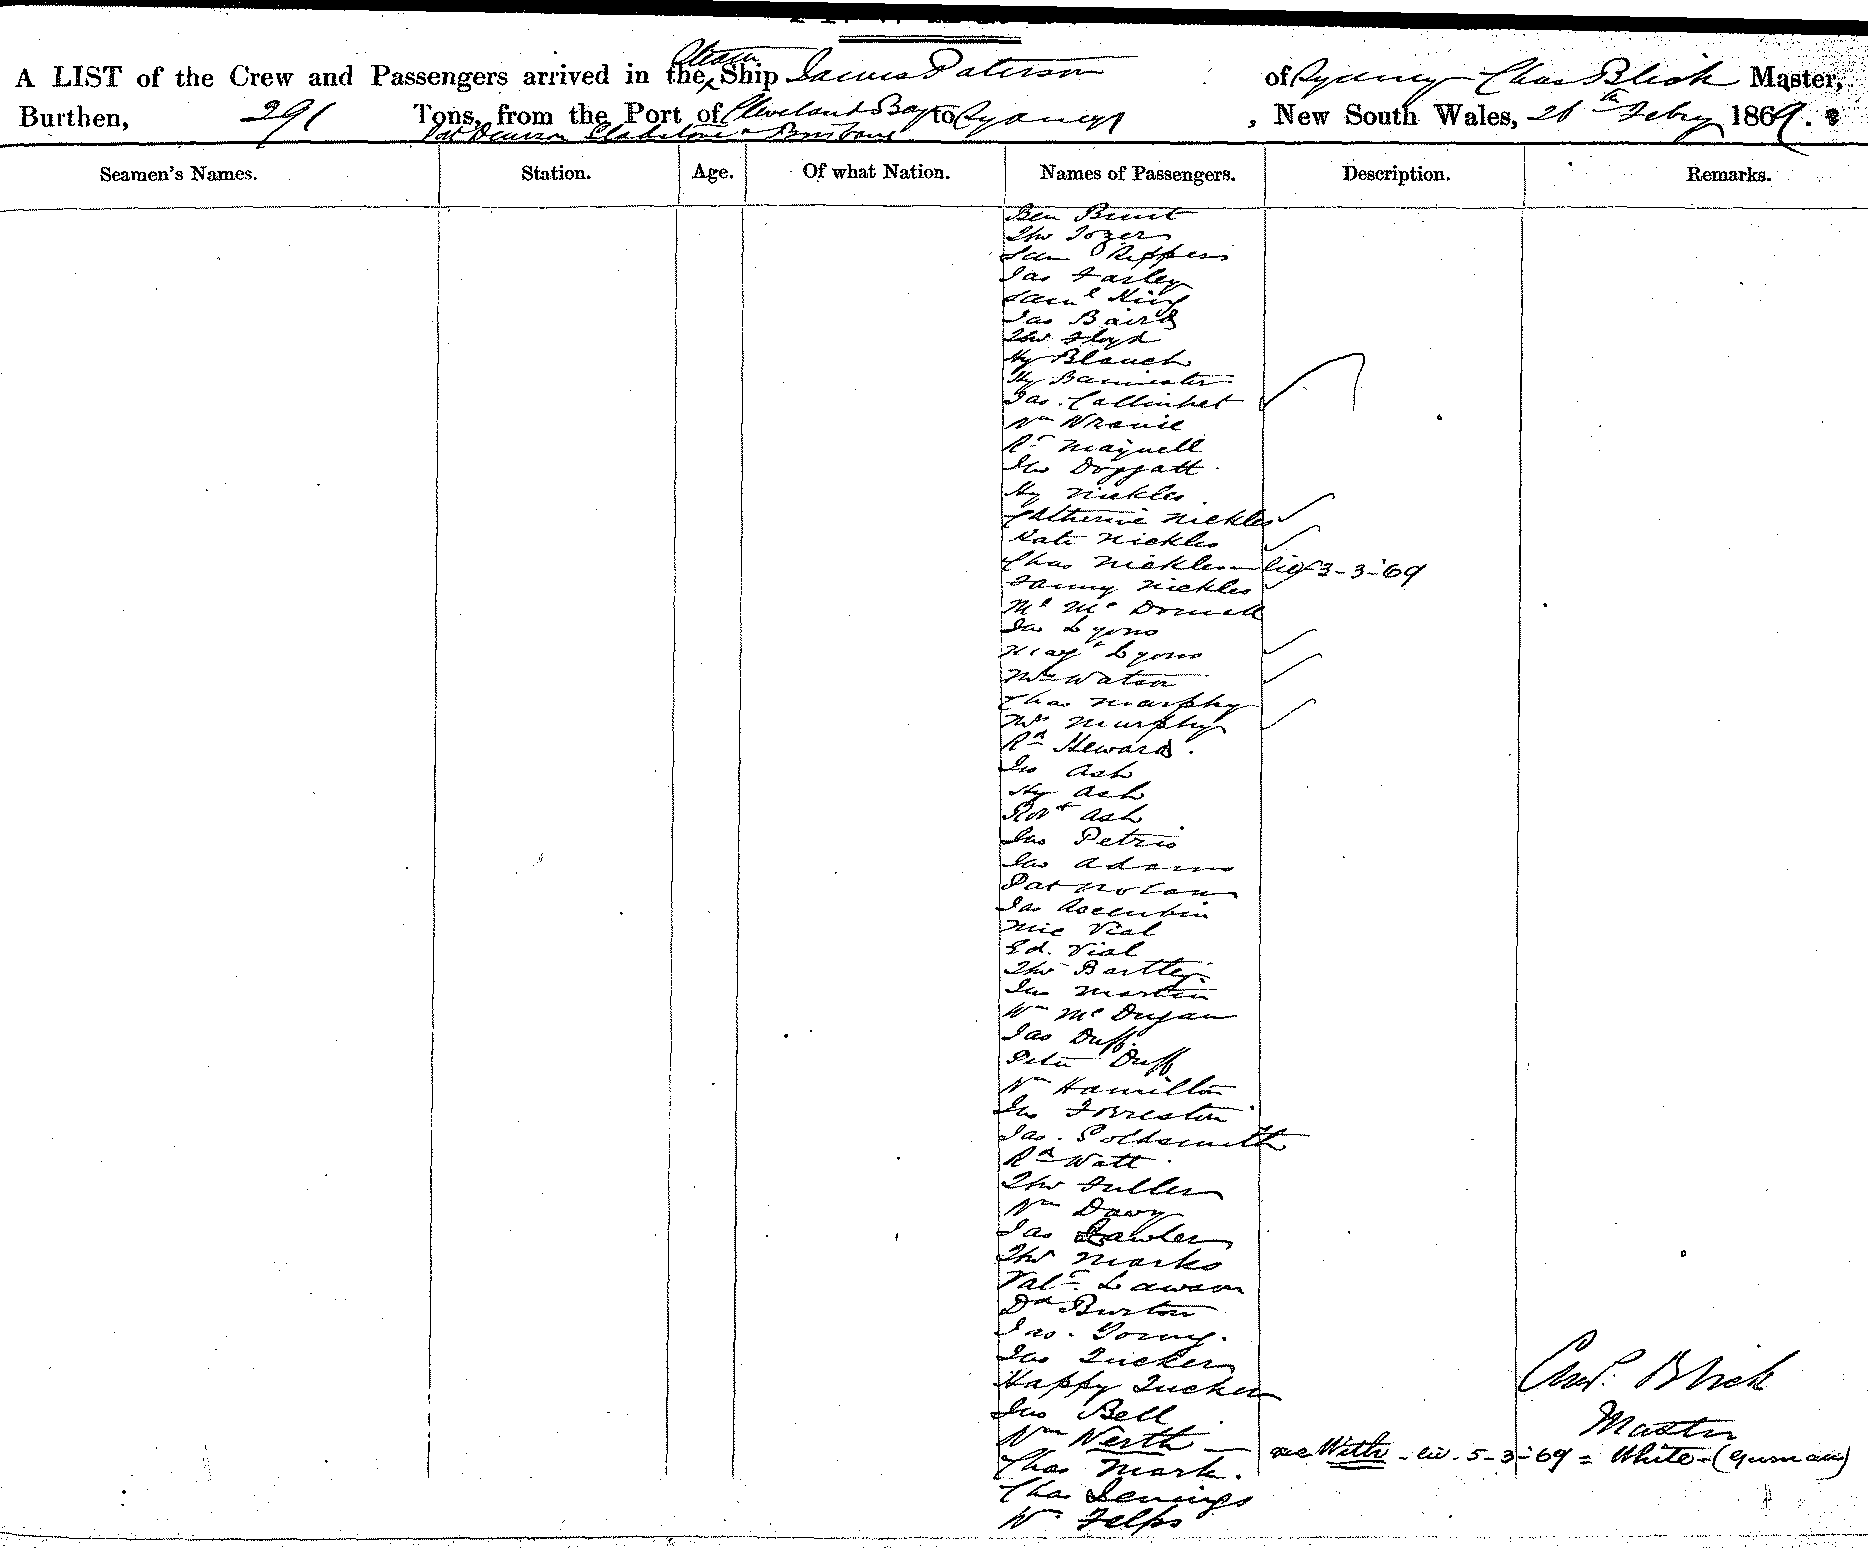 Steam
A LIST of the Crew and Passengers arrived in the Ship James Paterson of Sydney Chas Blick Master,
Burthen, 291 Tons, from the Port of Cleveland Bay to Sydney, New South Wales, 26th Febry 1869.
Port Denison Gladstone & Brisbane
Seamen's Names. Station. Age. Of what Nation. Names of Passengers. Description. Remarks.
Ben Bunt
Thos Tozer
Sam
Jas Farley
Saml King
Jas Baird
Thos Floyd
Hy Blanch
Hy Bannister
Jas.
Wm
Rt Maynell
Jno Doggatt
Hy Nickles
Catherine Nickles
Kate Nickles
Chas Nickles 3-3-'69
Fanny Nickles
Ml McDonnell
Jno Lyons
Margt Lyons
Mrs Watson
Chas Murphy
Mrs Murphy
Rd Heward.
Jno Ash
Hy Ash
Robt Ash
Jno Petrie
Jas Adams
Pat Nolan
Jas
Mic Vial
Ed. Vial
Thos Bartley
Jno Martin
Wm McDugan
Jas Duff
Peter Duff
Wm Hamilton
Jno Forrester
Jas. Goldsmith
Rd Watt
Thos Fuller
Wm Davy
Jas Lawler
Thos Marks
Valn Lawson
Dd Burton
Jas. Young.
Jno Tucker
Happy Tucker
Chas. Blick
Jno Bell
Master
Wm Werth — see With - 5-3-'69 = White - (German)
Chas Mark.
Chas Jennings
Wm Felps